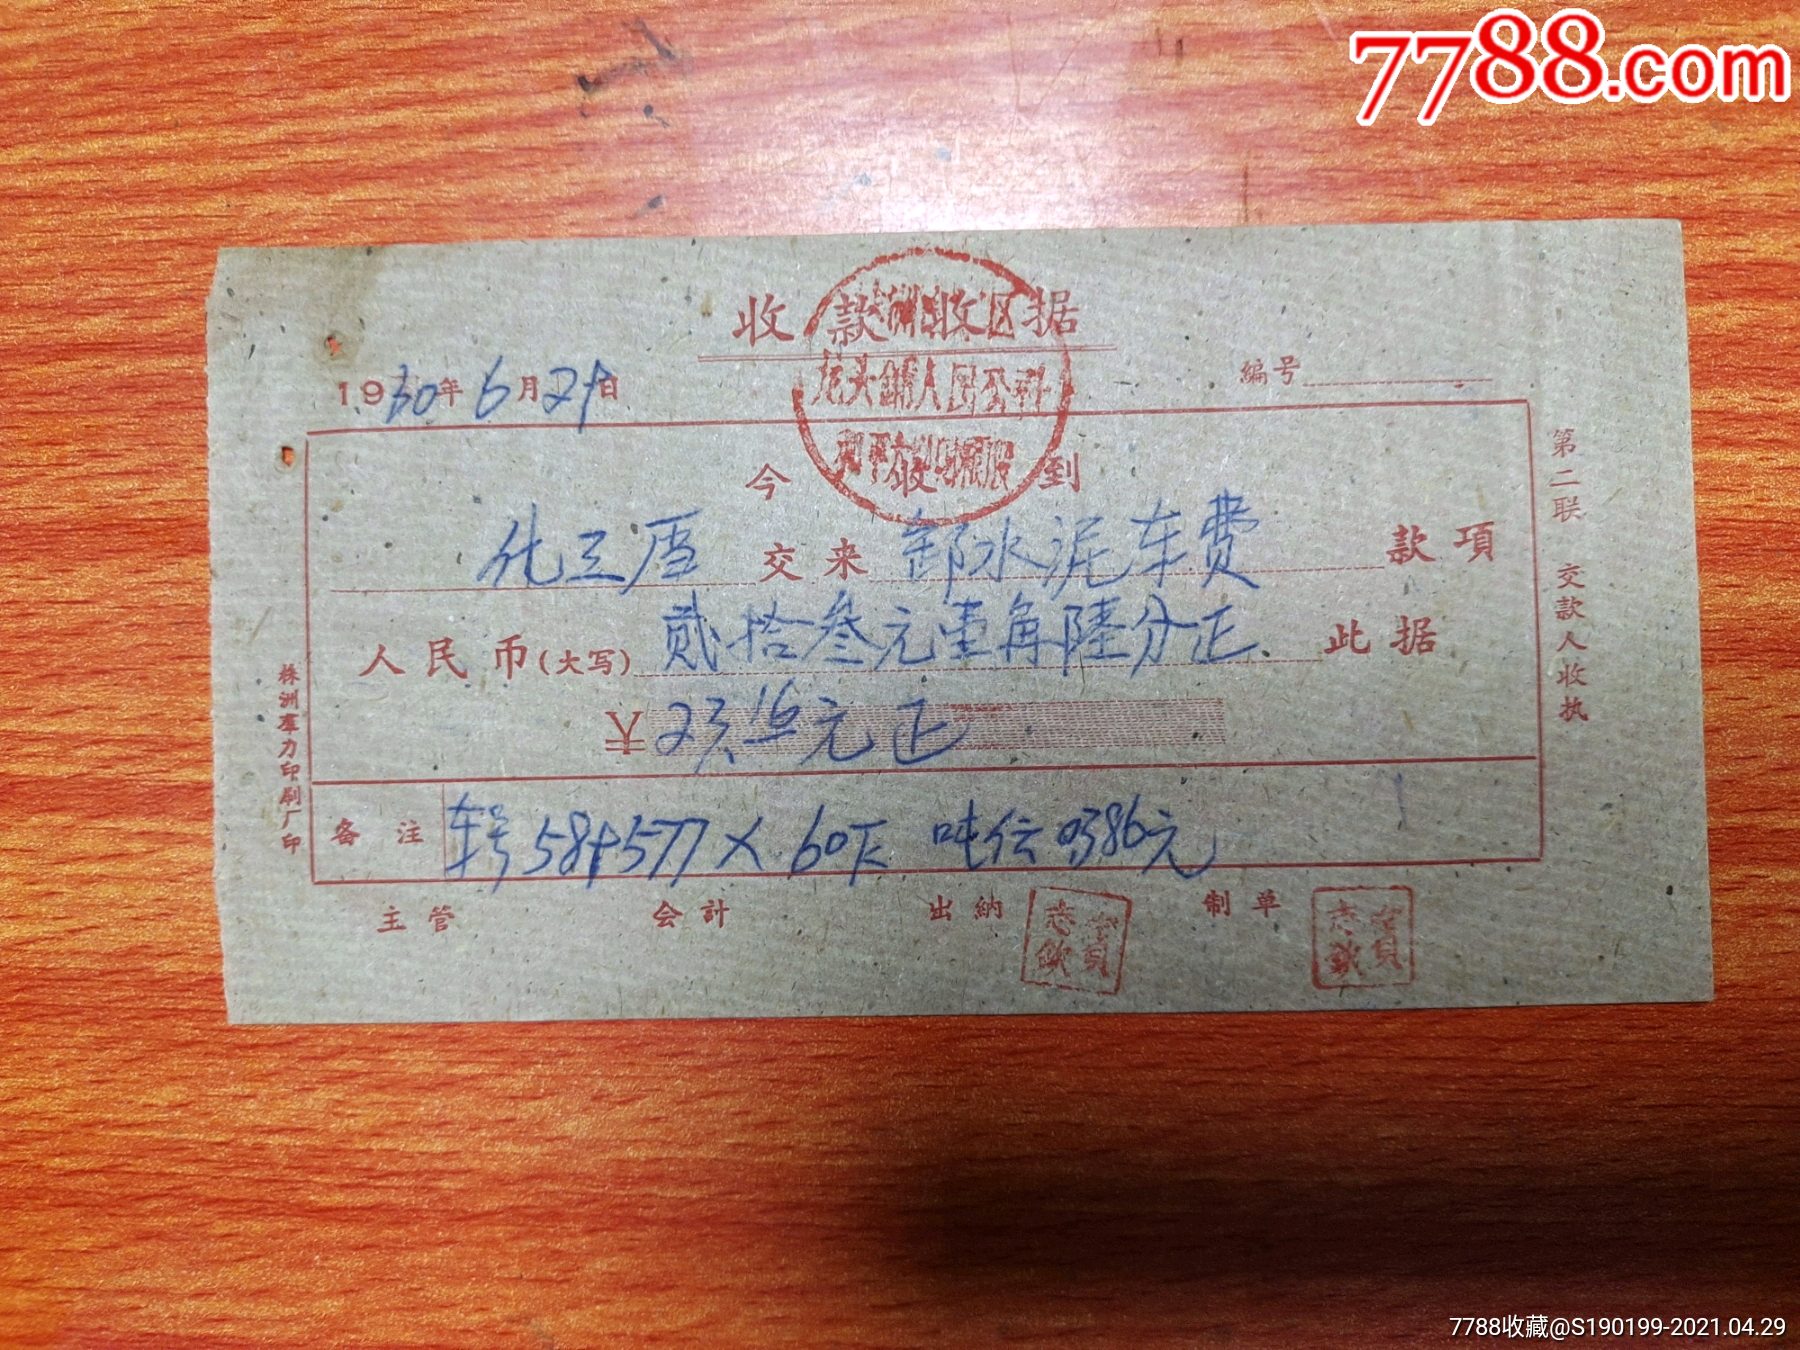 7788.com
收款收据
龙头铺人民公社
1960年6月29日
编号
今收到
化三厝交来卸水泥车费款項
人民币(大写)贰拾叁元壹角陸分正此据
¥23.16元正
备注 车号584577×60T 吨位0386元
主管 会計 出納 制单
第二联 交款人收执
株洲羣力印刷厂印
7788收藏@S190199-2021.04.29